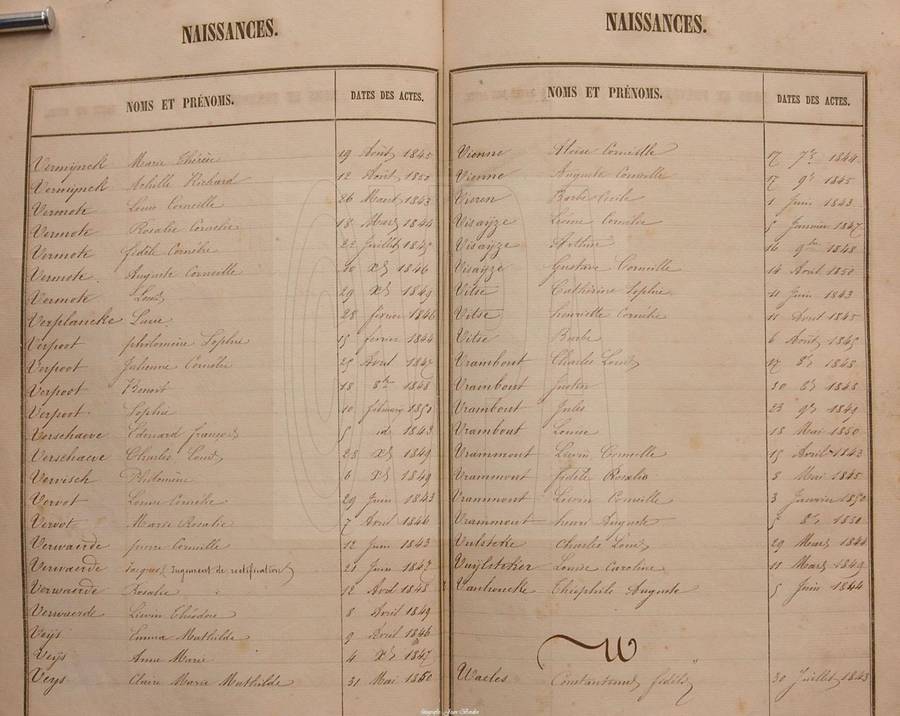 NAISSANCES.
NOMS ET PRÉNOMS. DATES DES ACTES.
Vermynck Marie Thérèse 19 Août 1845
Vermynck Achille Richard 12 Août 1850
Vermote Louis Corneille 26 Mars 1843
Vermote Rosalie Cornélie 18 Mars 1844
Vermote fidèl Cornélie 22 Juillet 1845
Vermote Auguste Corneille 10 Xbre 1846
Vermote Louis 29 Xbre 1849
Verplancke Lucie 28 février 1846
Verpoot philomène Sophie 15 février 1844
Verpoot Julienne Cornélie 25 Avril 1847
Verpoot Benoit 18 8bre 1848
Verpoot Sophie 10 1850
Verschaeve Edouard françois 5 id 1843
Verschaeve Charles Louis 28 Xbre 1849
Vervisch Philomène 6 Xbre 1849
Vervot Louise Cornélie 29 Juin 1843
Vervot Marie Rosalie 7 Avril 1846
Verwaerde Corneille 12 Juin 1843
Verwaerde Jacques Jugement de rectification 21 Juin 1847
Verwaerde Rosalie 12 Avril 1848
Verwaerde Liévin Théodore 8 Avril 1849
Veys Emma Mathilde 9 Avril 1846
Veys Anne Marie 4 Xbre 1847
Veys Claire Marie Mathilde 31 Mai 1850
NAISSANCES.
NOMS ET PRÉNOMS. DATES DES ACTES.
Vienne Aloïse Corneille 17 7bre 1844
Vienne Auguste Corneille 17 9bre 1845
Vieren Barbe Cécile 1 Juin 1843
Visaÿze Léonie Cornélie 5 Janvier 1847
Visaÿze 16 9bre 1848
Visaÿze Gustave Corneille 14 Août 1850
Vitse Cathérine Sophie 11 Juin 1843
Vitse henriette Cornélie 11 Avril 1845
Vitse Barbe 6 Août 1845
Vrambout Charles Louis 17 8bre 1845
Vrambout Justin 30 8bre 1848
Vrambout Jules 23 9bre 1849
Vrambout Louise 18 Mai 1850
Vrammont Liévin Corneille 15 Avril 1843
Vrammont fidèle Rosalie 3 Mai 1845
Vrammont Liévin Corneille 3 Janvier 1850
Vrammont henri Auguste 5 8bre 1850
Vulsteke Charles Louis 29 Mars 1844
Vuylsteker Louise Caroline 11 Mars 1849
Théophile Auguste 5 Juin 1844
W
Waeles Constantin fidèle 30 Juillet 1843